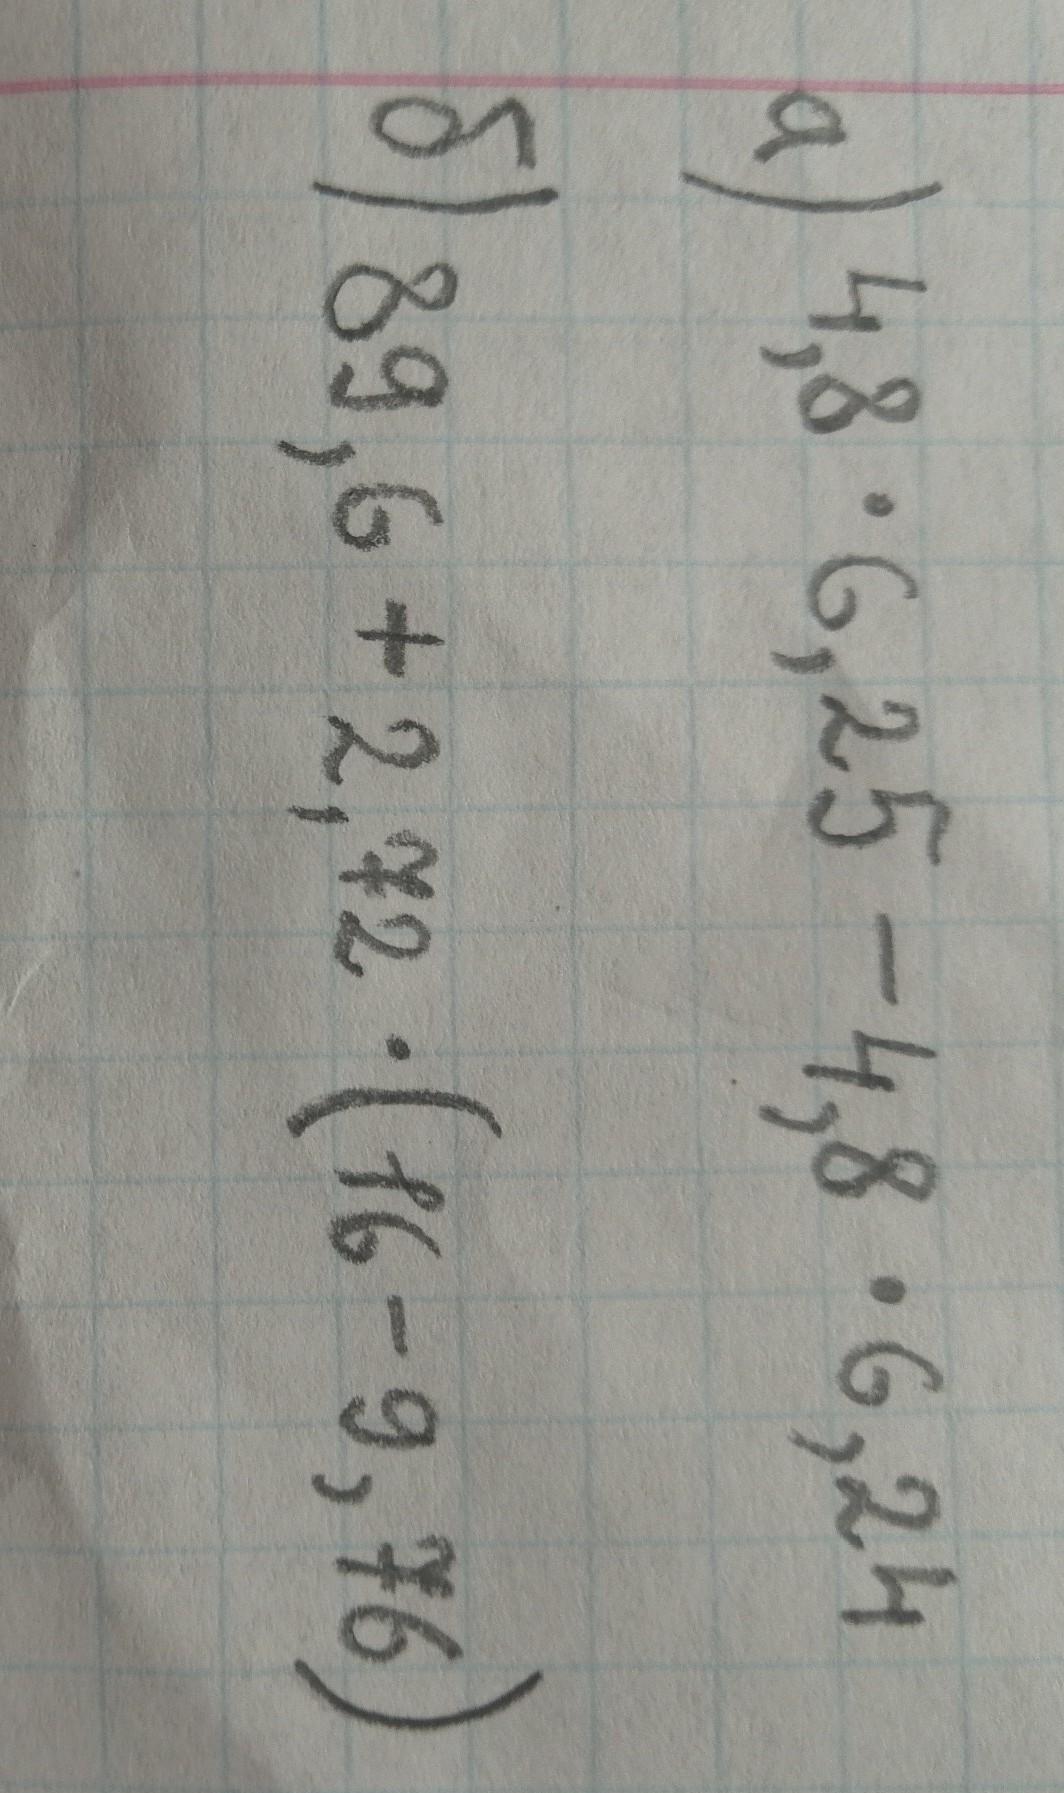 а) 4,8 · 6,25 - 4,8 · 6,24
б) 89,6 + 2,72 · (16 - 9,76)